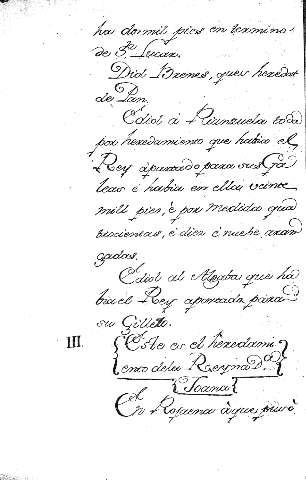 ha dos mil pies en termino
de S.n Lucar.
Did Brenes, que es heredat
de Pan.
E diol à Rianzuela toda
por heredamiento que habia el
Rey apartado para sus Ga
leas è habia en ella veinte
mill pies, è por medida qua
trescientas, è diez è nuebe aran
zadas.
E diol al Algaba que ha
bia el Rey apartada para
su
III. Este es el heredami
ento dela Reyna D.ª
Joana
En Requena à que puso